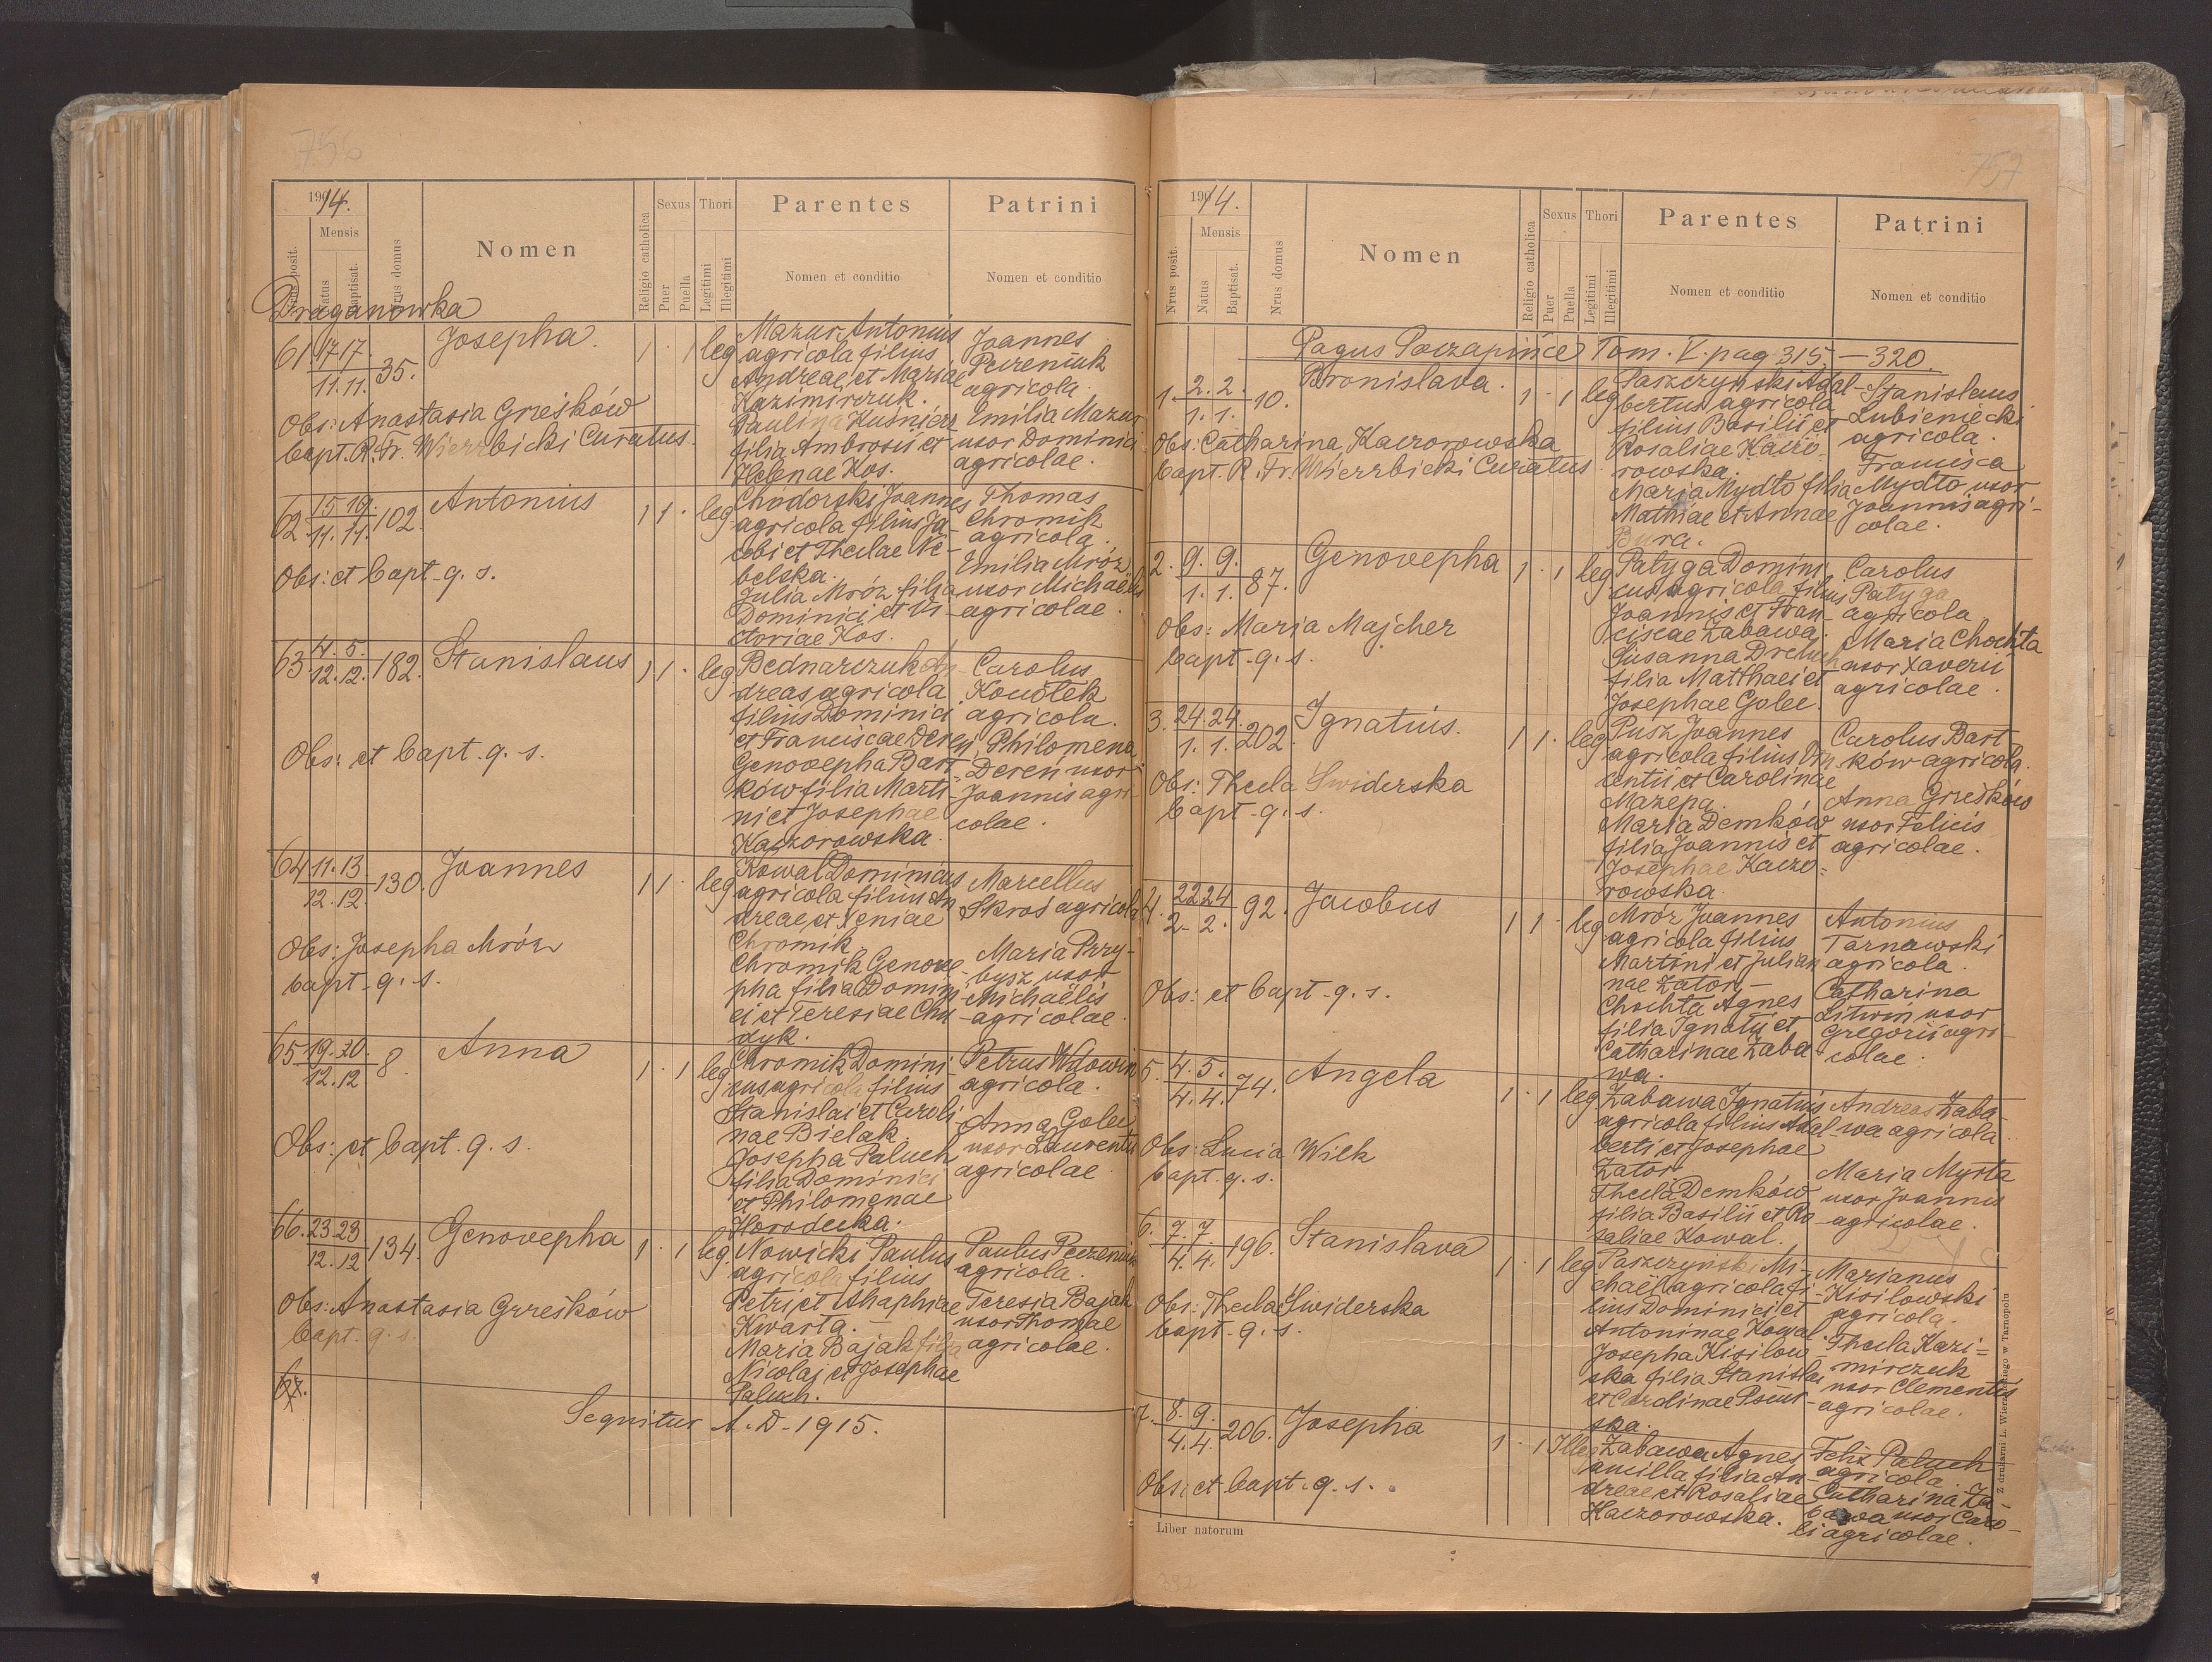 756
1914.
Nrus posit.
Mensis
Natus
Baptisat.
Nrus domus
Nomen
Religio catholica
Sexus
Puer
Puella
Thori
Legitimi
Illegitimi
Parentes
Nomen et conditio
Patrini
Nomen et conditio
Draganówka
61 17 17. 11. 11. 35. Josepha. 1 · 1 leg
Mazur Antonius
agricola filius
Andreae et Mariae
Kazimirczuk.
Paulina Kuśnierz
filia Ambrosii et
Helenae Kos.
Joannes
Peczeniuk
agricola.
Emilia Mazur
uxor Dominici
agricolae.
Obs: Anastasia Grześków
bapt. R. Fr. Wierzbicki Curatus.
62 15 19. 11. 11. 102. Antonius 1 1 · leg
Chodorski Joannes
agricola filius Ja-
cobi et Theclae Ne-
belska.
Julia Mróz filia
Dominici et Vi-
ctoriae Kos.
Thomas
Chromik
agricola.
Emilia Mróz
uxor Michaëlis
agricolae.
Obs: et bapt. q. s.
63. 4. 5. 12. 12. 182. Stanislaus 1 1 · leg
Bednarczuk An-
dreas agricola
filius Dominici
et Franciscae Dereń
Genovepha Bart-
ków filia Marti-
ni et Josephae
Kaczorowska
Carolus
Koń́ołek
agricola.
Philomena
Dereń uxor
Joannis agri-
colae.
Obs: et bapt. q. s.
64 11. 13 12. 12. 130. Joannes 1 1 · leg
Kowal Dominicus
agricola filius An
dreae et Xeniae
Chromik.
Chromik Genove-
pha filia Domini-
ci et Teresiae Chu
dyk.
Marcellus
Skroś agricola
Maria Przy-
bysz uxor
Michaëlis
agricolae.
Obs: Josepha Mróz
bapt. q. s.
65 19. 20. 12. 12 8. Anna 1 · 1 leg
Chromik Domini-
cus agricola filius
Stanislai et Caroli-
nae Bielak
Josepha Paluch
filia Dominici
et Philomenae
Horodecka.
Petrus Wdowin
agricola.
Anna Golec
uxor Laurentii
agricolae
Obs: et bapt. q. s.
66. 23 23 12. 12 134. Genovepha 1 · 1 leg.
Nowicki Paulus
agricola filius
Petri et Ahaphiae
Kwarta. -
Maria Bajak filia
Nicolai et Josephae
Paluch.
Paulus Peczeniuk
agricola.
Teresia Bajak
uxor Thomae
agricolae.
Obs: Anastasia Grześków
bapt. q. s.
67.
Sequitur A. D. 1915.
757
1914.
Nrus posit.
Mensis
Natus
Baptisat.
Nrus domus
Nomen
Religio catholica
Sexus
Puer
Puella
Thori
Legitimi
Illegitimi
Parentes
Nomen et conditio
Patrini
Nomen et conditio
Pagus Poczapińce Tom. V. pag 315. - 320.
1 2. 2. 1. 1. 10. Bronislava. 1 · 1 leg
Paszczyński Adal-
bertus agricola
filius Basilii et
Rosaliae Kaczo-
rowska.
Maria Mydło filia
Mathiae et Annae
Bura.
Stanislaus
Lubieniecki
agricola.
Francisca
Mydło uxor
Joannis agri-
colae.
Obs: Catharina Kaczorowska
bapt. R. Fr. Wierzbicki Curatus
2. 9. 9. 1. 1. 87. Genovepha 1 · 1 leg
Patyga Domini-
cus agricola filius
Joannis et Fran-
ciscae Zabawa.
Susanna Drewch
filia Matthaei et
Josephae Golec.
Carolus
Patyga
agricola
Maria Chochta
uxor Xaverii
agricolae.
Obs: Maria Majcher
bapt. q. s.
3. 24. 24. 1. 1. 202. Ignatius. 1 1 · leg
Pusz Joannes
agricola filius Vin-
centii et Carolinae
Mazepa.
Maria Demków
filia Joannis et
Josephae Kaczo-
rowska.
Carolus Bart
ków agricola.
Anna Grześków
uxor Felicis
agricolae.
Obs: Thecla Świderska
bapt. q. s.
4. 22 24 2. 2. 92. Jacobus 1 1 · leg
Mróz Joannes
agricola filius
Martini et Julian
nae Zator -
Chochta Agnes
filia Ignatii et
Catharinae Zaba
wa.
Antonius
Tarnawski
agricola.
Catharina
Litwin uxor
Gregorii agri-
colae.
Obs: et bapt. q. s.
5. 4. 5. 4. 4. 74. Angela 1 · 1 leg
Zabawa Ignatius
agricola filius Adal-
berti et Josephae
Zator
Thecla Demków
filia Basilii et Ro
saliae Kowal.
Andreas Zaba-
wa agricola.
Maria Myrta
uxor Joannis
agricolae.
Obs: Lucia Wilk
bapt. q. s.
6. 7. 7. 4. 4. 196. Stanislava 1 · 1 leg
Paszczyński Mi-
chaël agricola fi-
lius Dominici et
Antoninae Kowal.
Josepha Kisilow-
ska filia Stanislai
et Carolinae
ska.
Marianus
Kisilowski
agricola.
Thecla Kazi=
mirczuk
uxor Clementis
agricolae.
Obs: Thecla Świderska
bapt. q. s.
7. 8. 9. 4. 4. 206. Josepha 1 · 1 Illeg
Zabawa Agnes
ancilla filia An-
dreae et Rosaliae
Kaczorowska.
Felix Paluch
agricola.
Catharina Za-
bawa uxor Caro-
li agricolae.
Obs: et bapt. q. s.
Liber natorum
Z drukarni L. Wierzbickiego w Tarnopolu